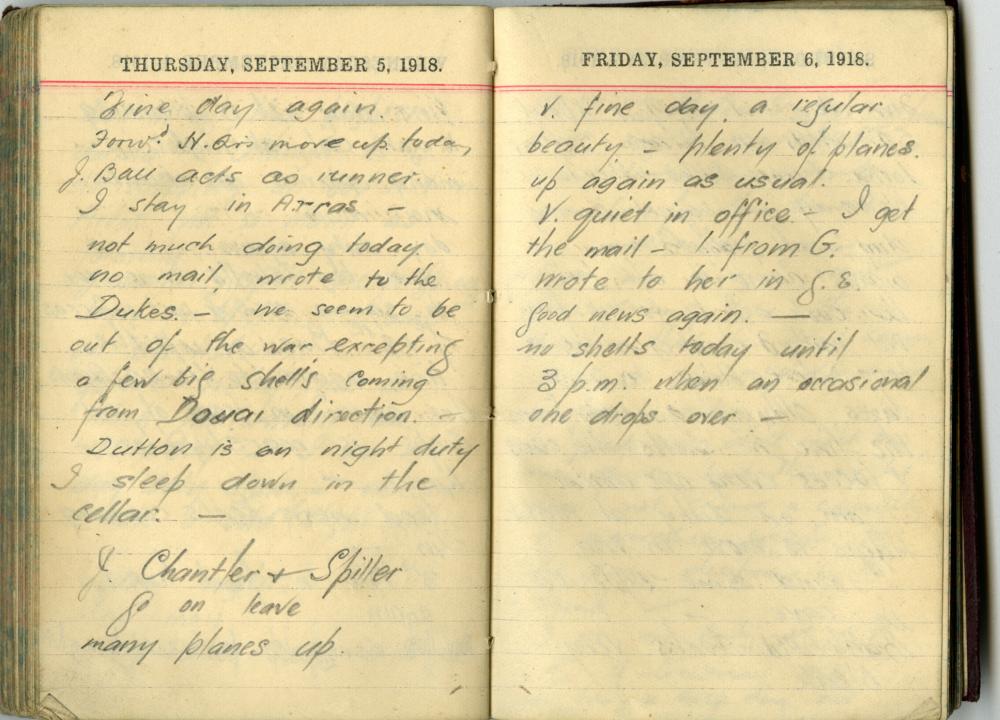 THURSDAY, SEPTEMBER 5, 1918.
Fine day again.
Forwd H.Qrs move up today,
J. Ball acts as runner
I stay in Arras –
not much doing today.
no mail, wrote to the
Dukes. – we seem to be
out of the war, excepting
a few big shells coming
from Douai direction. –
Dutton is on night duty
I sleep down in the
cellar. —
J. Chantler + Spiller
go on leave
many planes up.
FRIDAY, SEPTEMBER 6, 1918.
V. fine day, a regular
beauty – plenty of planes.
up again as usual.
V. quiet in office. – I get
the mail – 1 from G.
wrote to her in G.E.
good news again. —
no shells today until
3 p.m. when an occasional
one drops over –